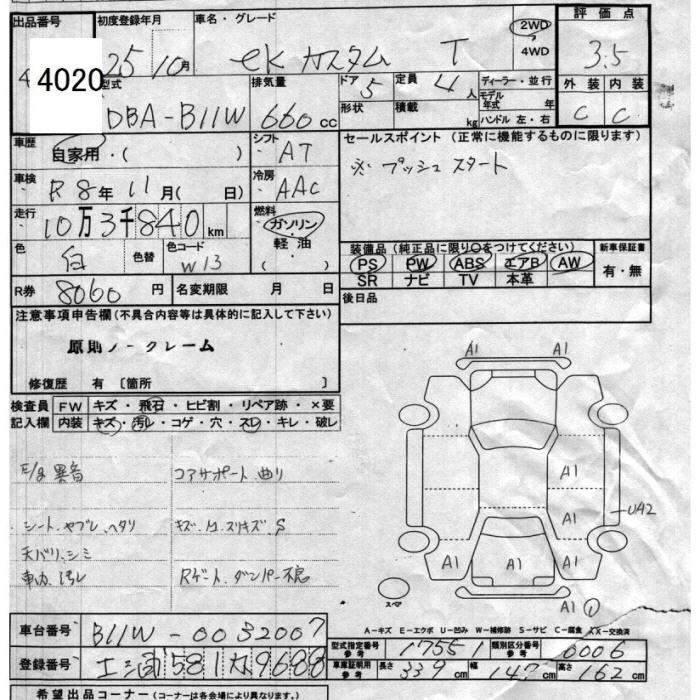 出品番号 初度登録年月 車名・グレード 2WD 評価点
4020 25 10月 eKカスタム T 4WD 3.5
型式 排気量 ドア 5 定員 4人 ディーラー・並行 外装 内装
DBA-B11W 660cc 形状 積載 kg モデル年式 年 C C
ハンドル 左・右
車歴 自家用・( ) シフト AT セールスポイント (正常に機能するものに限ります)
車検 R8年 11月( 日) 冷房 AAC ※プッシュスタート
走行 10万3千840km 燃料 ガソリン
色 白 色替 色コード W13 軽油 ( )
装備品(純正品に限り○をつけてください) 新車保証書
PS PW ABS エアB AW 有・無
SR ナビ TV 本革
R券 8060円 名変期限 月 日 後日品
注意事項申告欄(不具合内容等は具体的に記入して下さい)
原則ノークレーム
修復歴 有 〔箇所 〕
検査員 FW キズ・飛石・ヒビ割・リペア跡・×要
記入欄 内装 キズ・汚レ・コゲ・穴・スレ・キレ・破レ
A1 A1
E/g 異音 コアサポート曲り
A1
シート、ヤブレ、ヘタリ キズ、
スリキズ S
A1 U42
天バリ、シミ
A1 A1 A1
車内 汚レ Rゲート、ダンパー不良
スペア A1 ①
A-キズ E-エクボ U-凹み W-補修跡 S-サビ C-腐食 XX-交換済
車台番号 B11W-0032007
型式指定番号 参考 17551 類別区分番号 参考 0006
登録番号 581 9688
車庫証明用 参考 長さ 339cm 幅 147cm 高さ 162cm
希望出品コーナー (コーナーは各会場により異なります。)